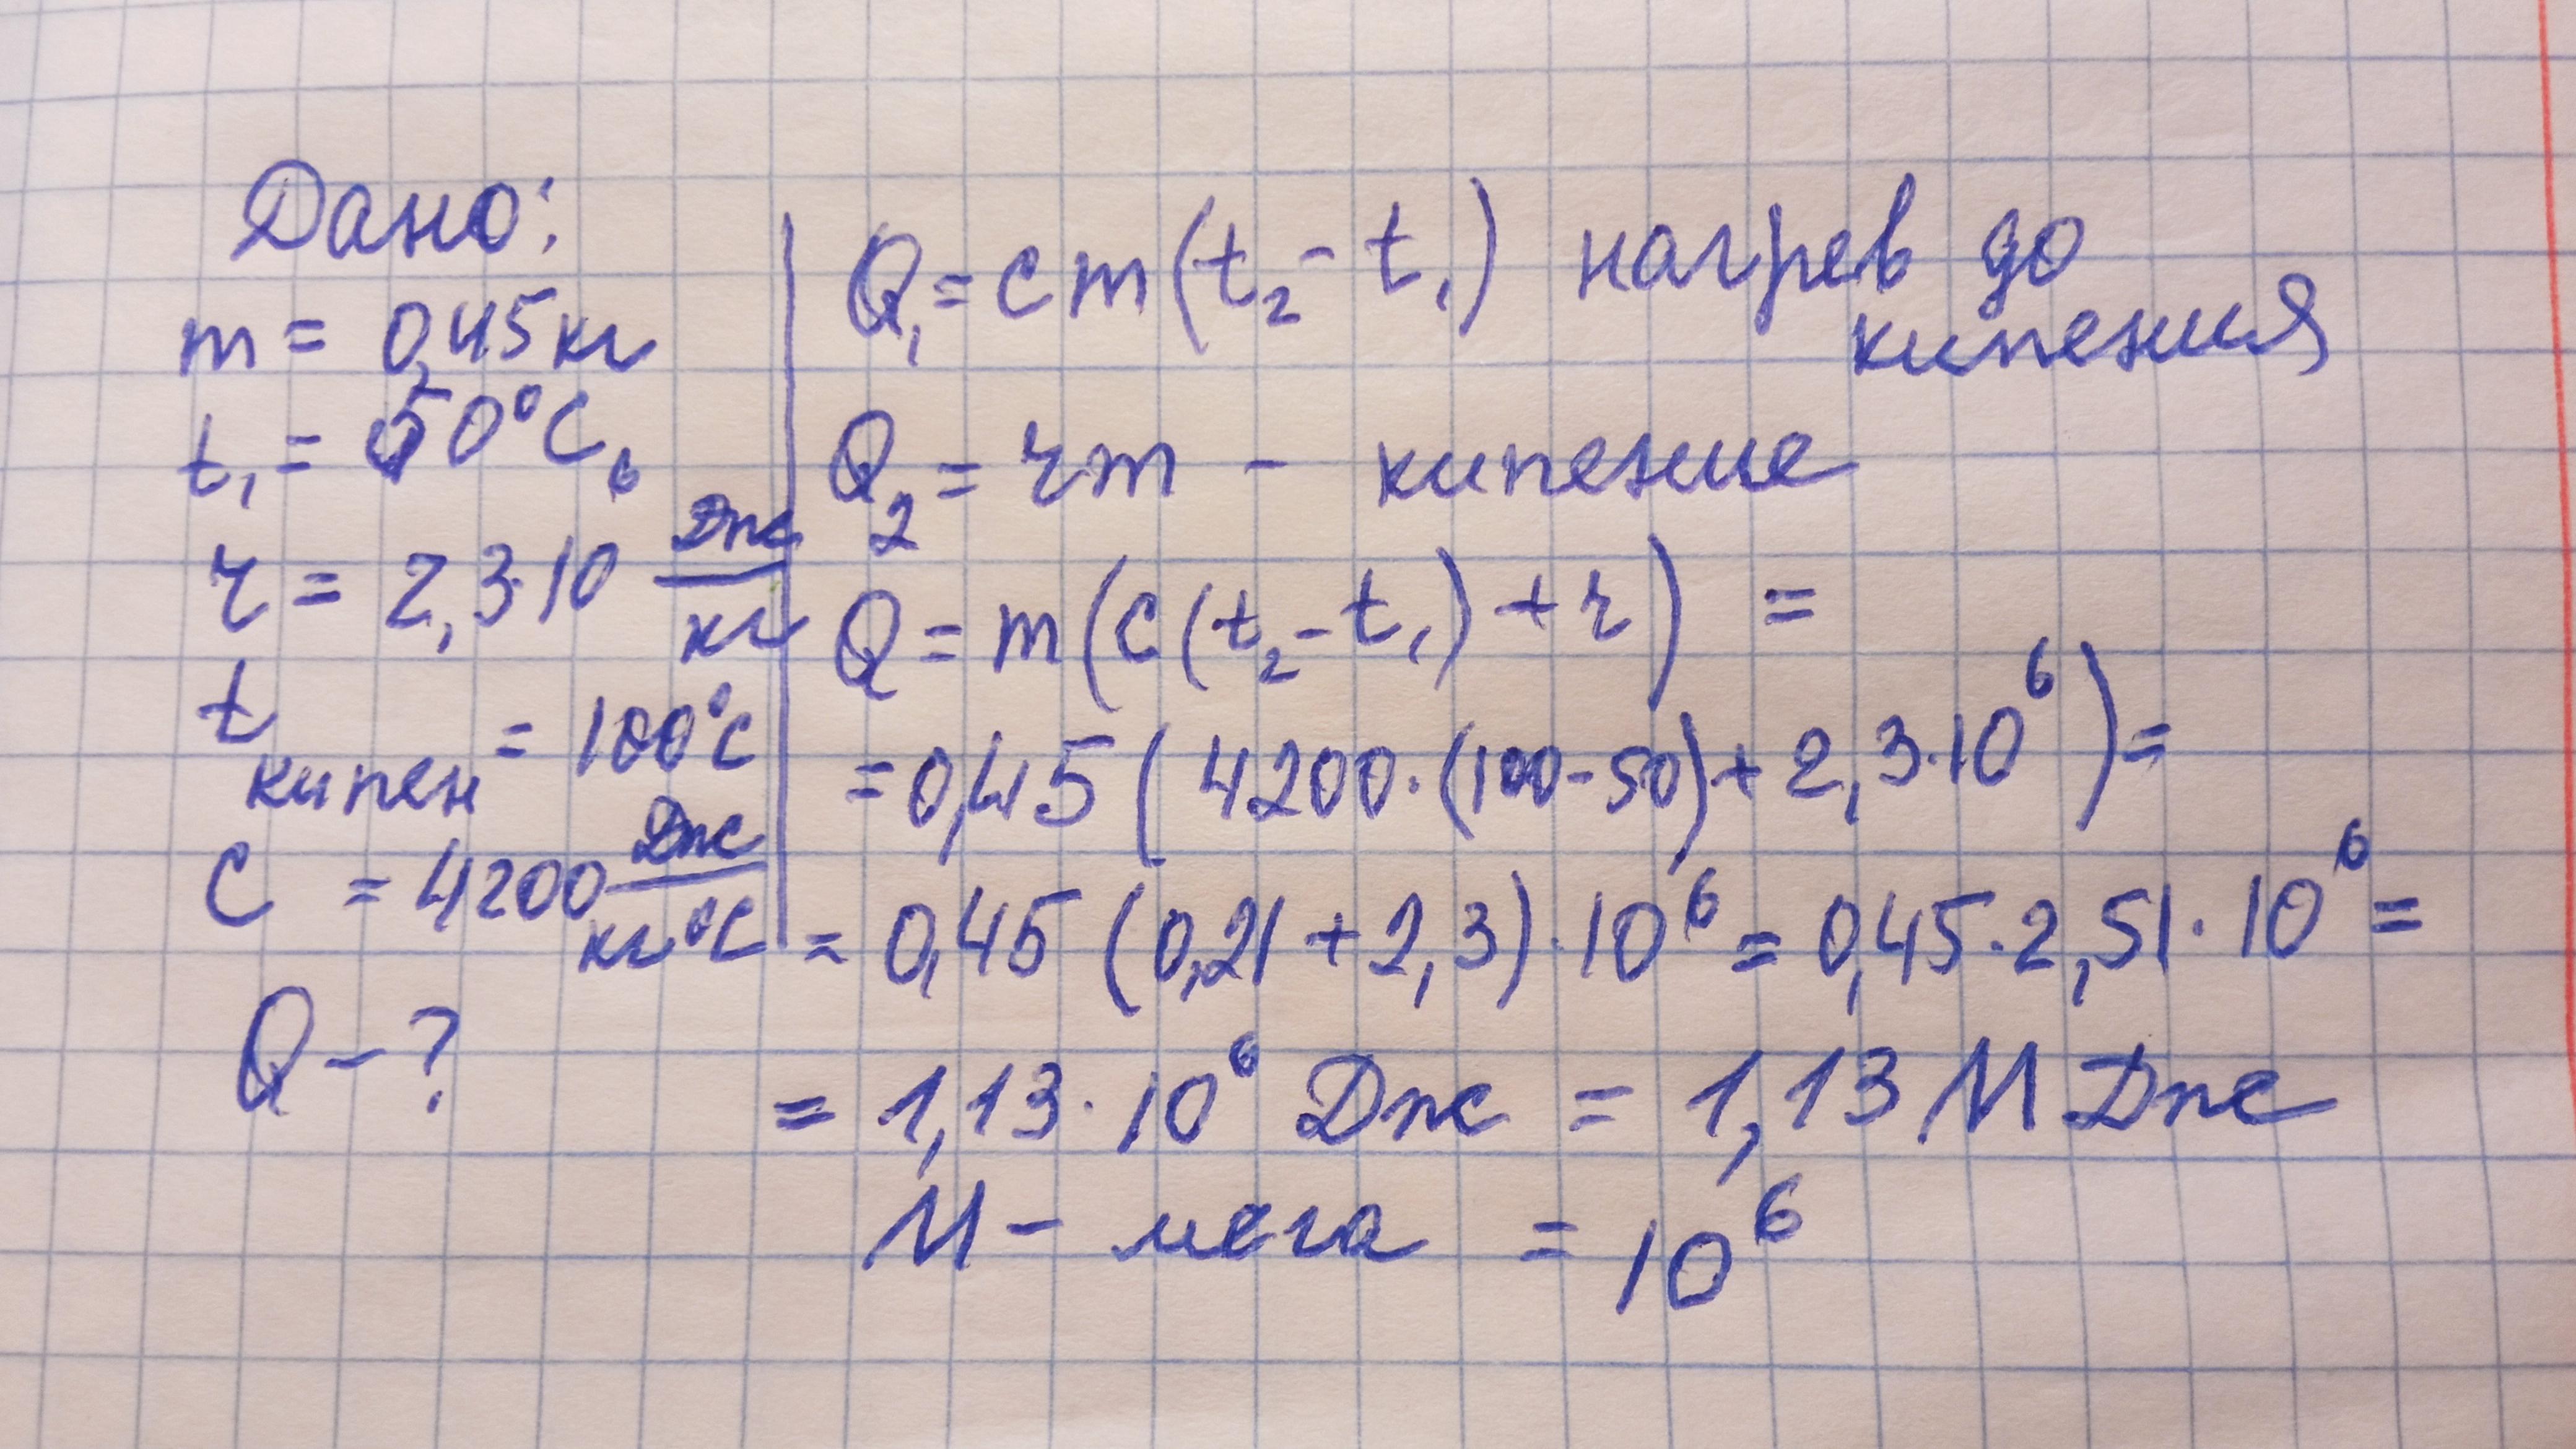 Дано:
m = 0,45 кг
t₁ = 50°C
r = 2,3·10⁶ Дж/кг
t кипен = 100°C
C = 4200 Дж/кг°C
Q - ?
Q₁ = cm(t₂ - t₁) нагрев до
кипения
Q₂ = rm - кипение
Q = m(c(t₂ - t₁) + r) =
= 0,45 (4200·(100-50) + 2,3·10⁶) =
= 0,45 (0,21 + 2,3)·10⁶ = 0,45·2,51·10⁶ =
= 1,13·10⁶ Дж = 1,13 М Дж
М - мега = 10⁶